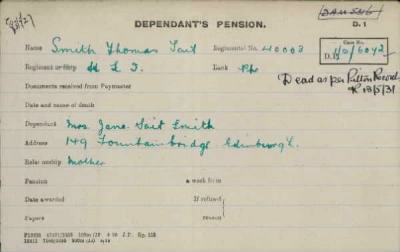 DEPENDANT'S PENSION.
D. 1
Name Smith Thomas Tait Regimental No. 40003
Case No.
D. 1/0/6042
Regiment or Ship H L I Rank Pte
Documents received from Paymaster
Dead as per Pittn Record
18/5/31
Date and name of death
Dependant Mrs. Jane Tait Smith
Address 149 Fountainbridge Edinburgh.
Relationship Mother
Pension a week from
Date awarded If refused
Papers reason